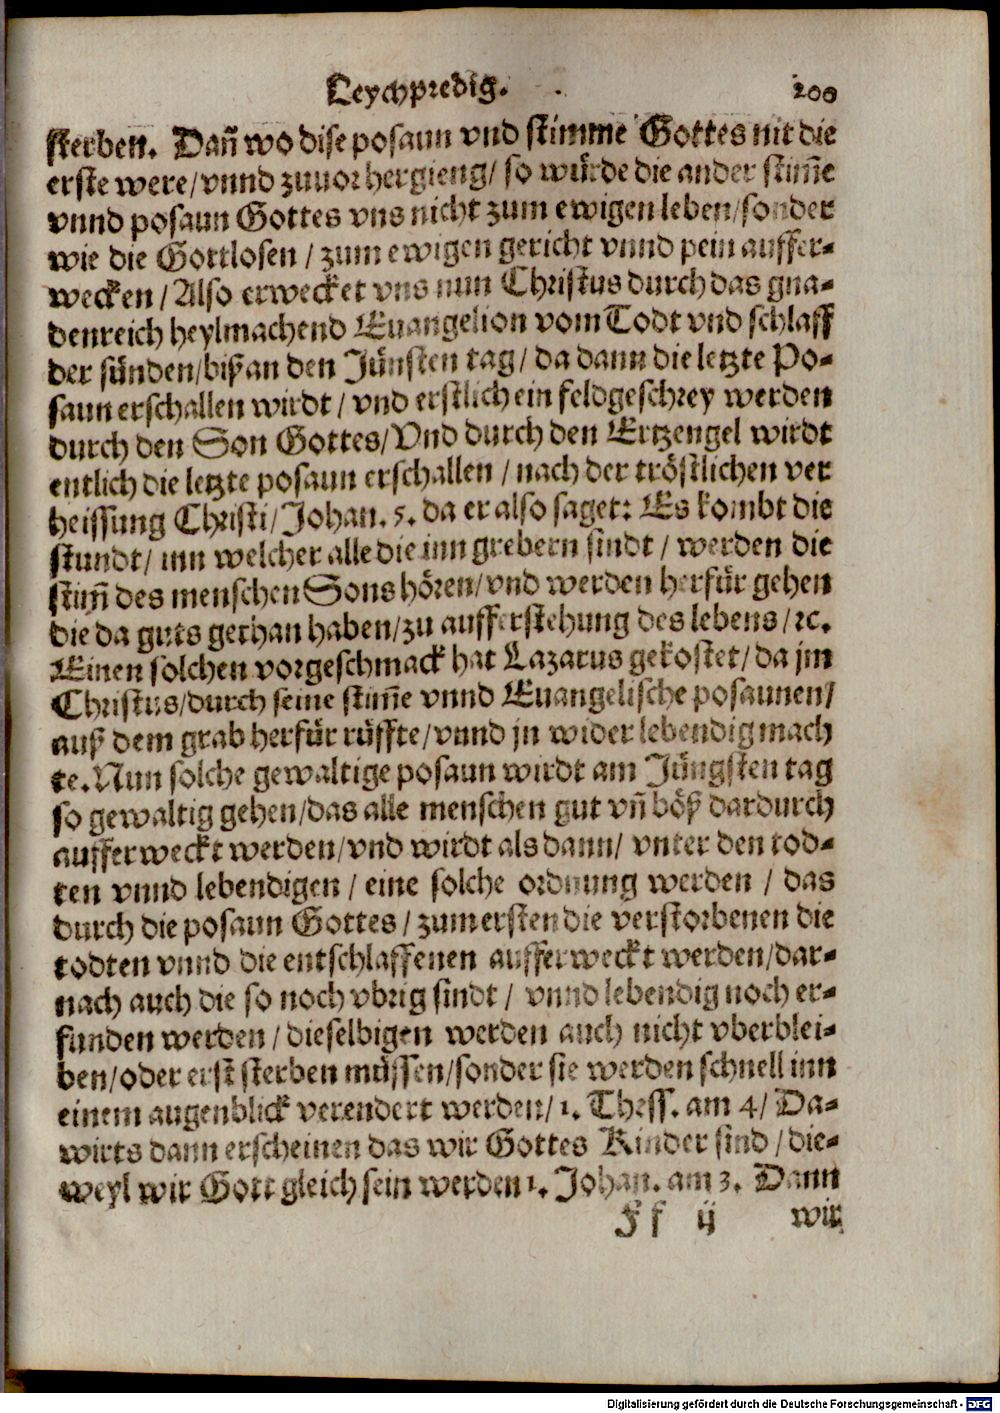 Leychpredig. 200
sterben. Dañ wo dise posaun vnd stimme Gottes nit die
erste were/vnnd zuuor hergieng/ so würde die ander stim̃e
vnnd posaun Gottes vns nicht zum ewigen leben/sonder
wie die Gottlosen / zum ewigen gericht vnnd pein auffer-
wecken / Also erwecket vns nun Christus durch das gna-
denreich heylmachend Euangelion vom Todt vnd schlaff
der sünden/biß an den Jünsten tag/ da dann die letzte Po-
saun erschallen wirdt / vnd erstlich ein feldgeschrey werden
durch den Son Gottes/Vnd durch den Ertzengel wirdt
entlich die letzte posaun erschallen / nach der tröstlichen ver
heissung Christi/Johan. 5. da er also saget: Es kombt die
stundt/ inn welcher alle die inn grebern sindt / werden die
stim̃ des menschen Sons hören/vnd werden herfür gehen
die da guts gethan haben/zu aufferstehung des lebens/ꝛc.
Einen solchen vorgeschmack hat Lazarus gekostet/da jm
Christus/durch seine stim̃e vnnd Euangelische posaunen/
auß dem grab herfür rüffte/vnnd jn wider lebendig mach
te. Nun solche gewaltige posaun wirdt am Jüngsten tag
so gewaltig gehen/das alle menschen gut vñ böß dardurch
aufferweckt werden/vnd wirdt als dann/ vnter den tod-
ten vnnd lebendigen / eine solche ordnung werden / das
durch die posaun Gottes / zum ersten die verstorbenen die
todten vnnd die entschlaffenen aufferweckt werden/dar-
nach auch die so noch vbrig sindt / vnnd lebendig noch er-
funden werden / dieselbigen werden auch nicht vberblei-
ben/oder erst sterben müssen/sonder sie werden schnell inn
einem augenblick verendert werden/ 1. Thess. am 4/ Da-
wirts dann erscheinen das wir Gottes Kinder sind / die-
weyl wir Gott gleich sein werden 1. Johan. am 3. Dann
Ff ij wir
Digitalisierung gefördert durch die Deutsche Forschungsgemeinschaft - DFG